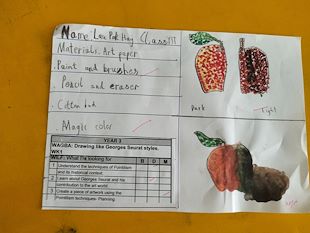 Name: Lau Pak Hay Class
Materials. Art paper
. Paint and brushes
. Pencil and eraser
. Cotton bud
. Magic color
Dark
Light
YEAR 3
WAGBA: Drawing like Georges Seurat styles.
WK1
WILF: What I'm looking for B D M
1 Understand the techniques of Pointillism and its historical context
2 Learn about Georges Seurat and his contribution to the art world.
3 Create a piece of artwork using the Pointillism techniques- Planning